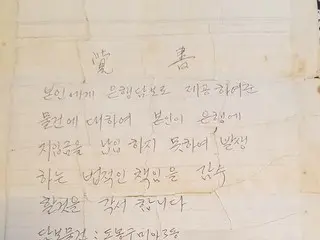 覺 書
본인에게 은행담보로 제공하여준
물건에 대하여 본인이 은행에
차입금을 납입 하지 못하여 발생
하는 법적인 책임을 감수
할것을 각서 합니다
담보물건 : 도봉구 미아3동